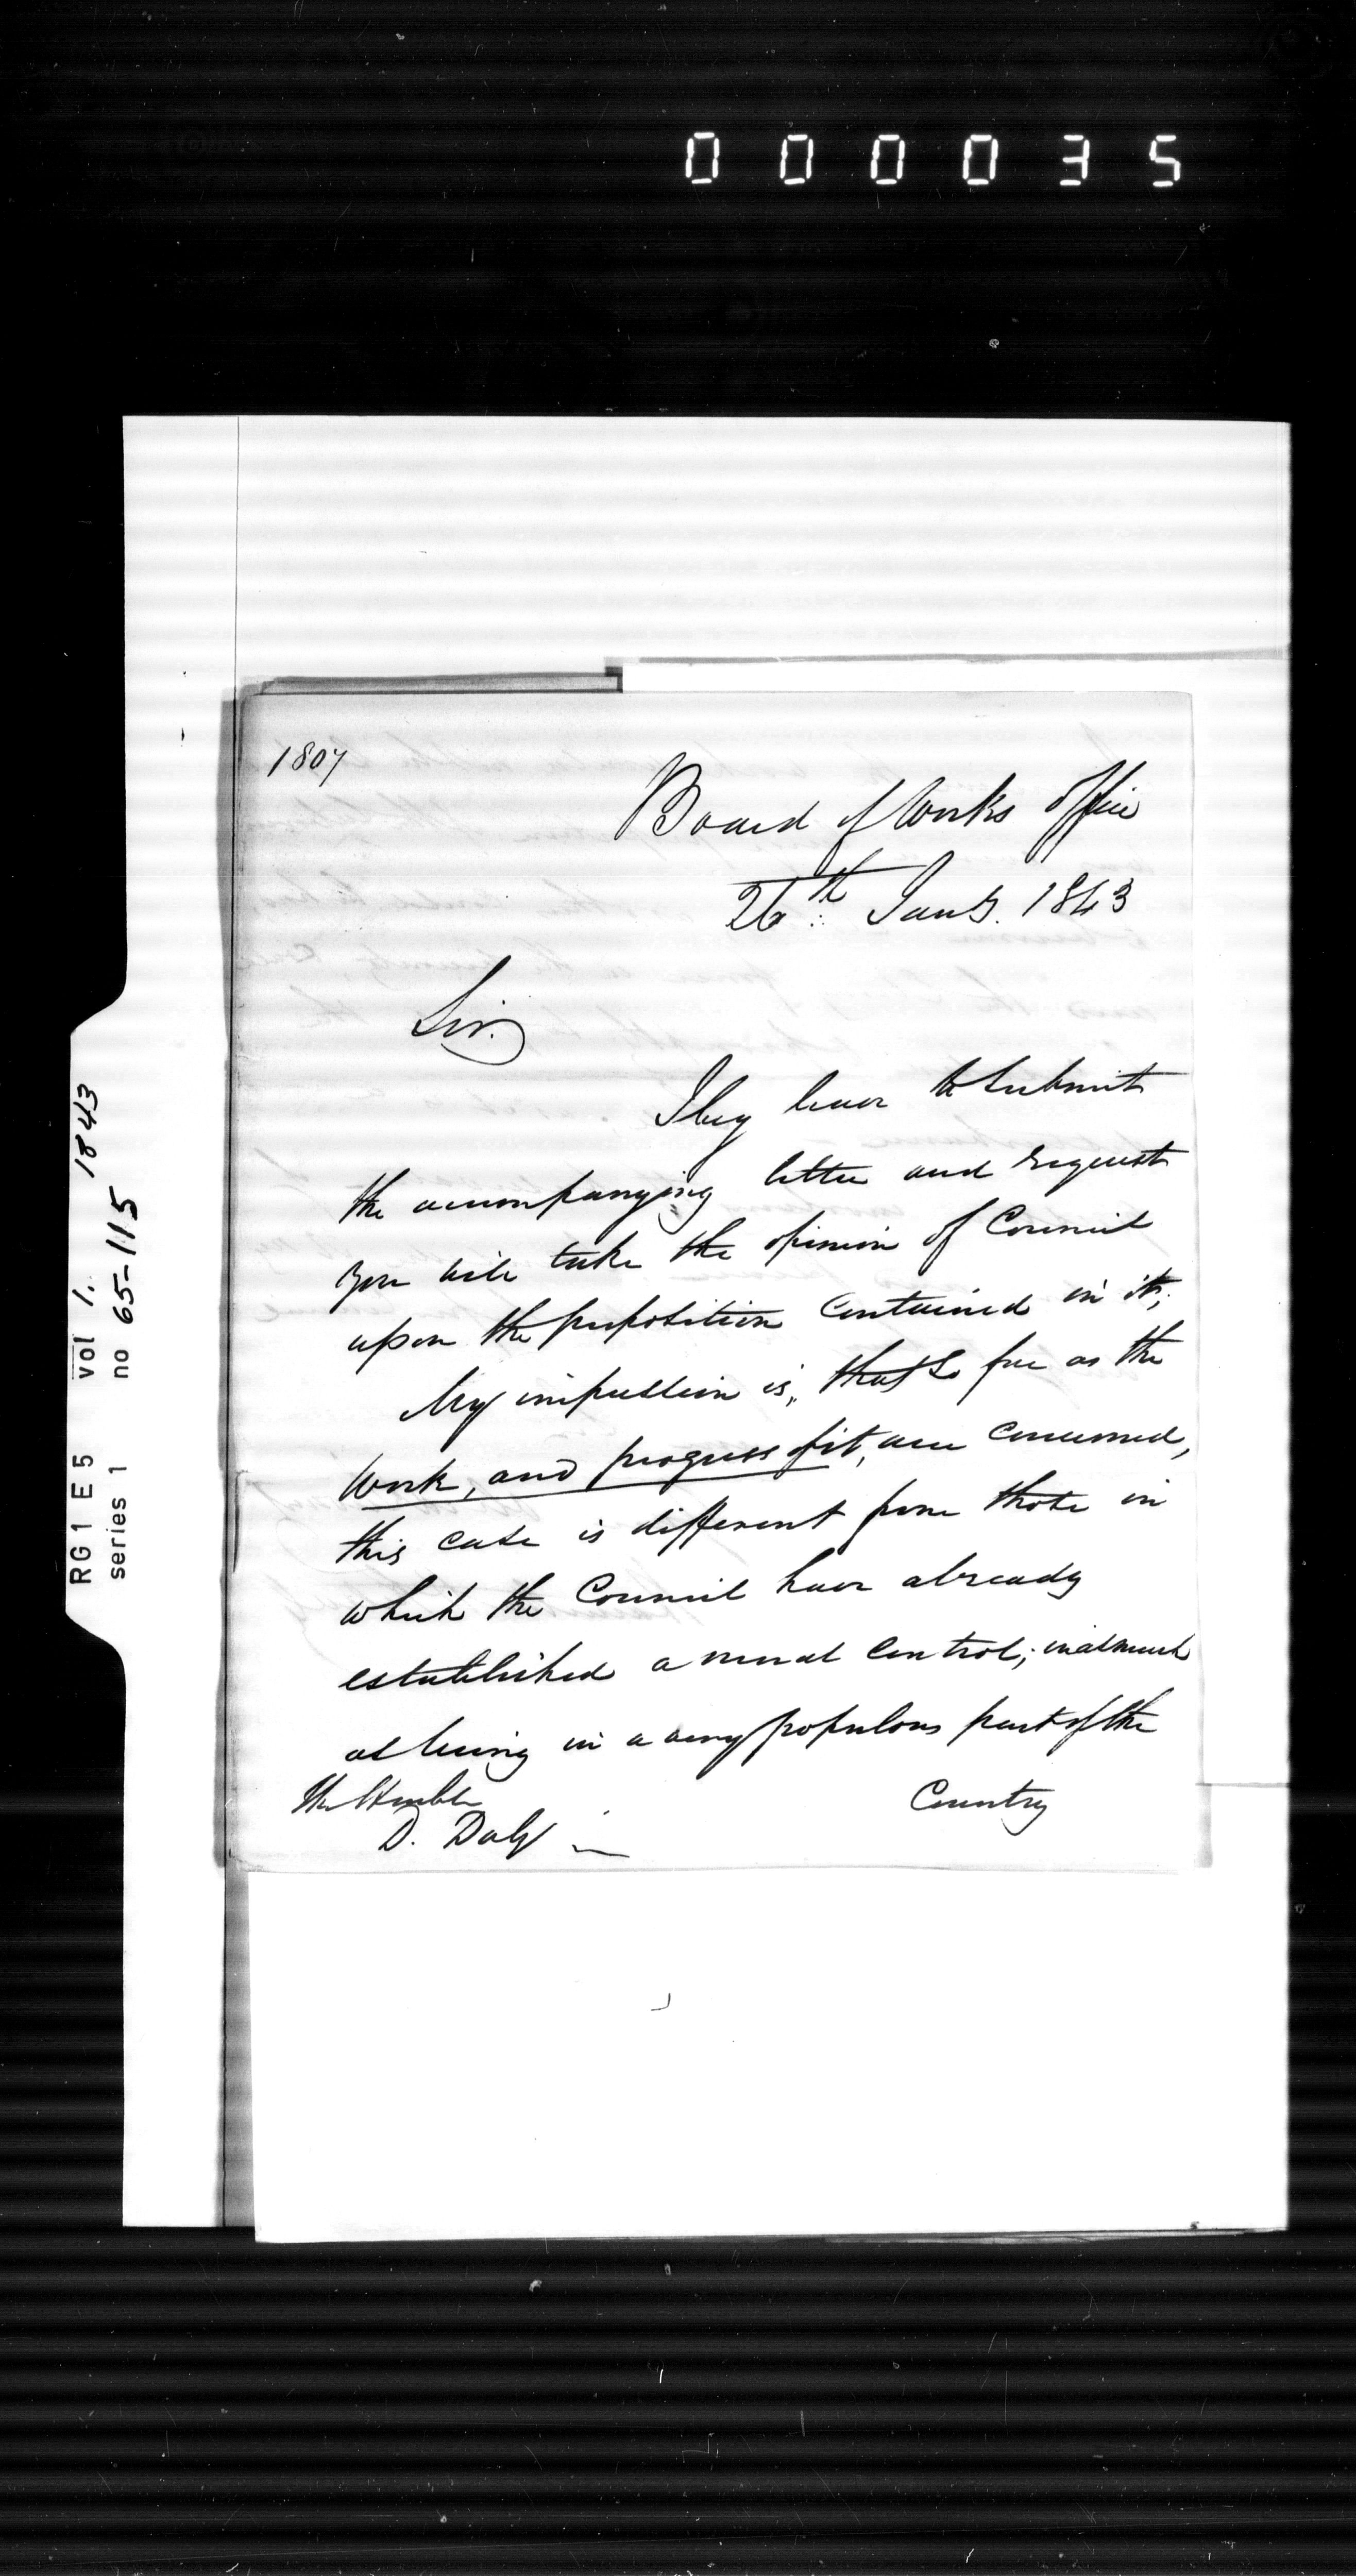 000035
RG1 E5 vol 1. 1843
series 1 no 65-115
1807
Board of Works Office
26th Jany. 1843
Sir.
I beg leave to submit
the accompanying letter and request
you will take the opinion of Council
upon the proposition contained in it;
My impression is, that so far as the
work, and progress of it, are concerned,
this case is different from those in
which the Council have already
established a control; inasmuch
as being in a very populous part of the
Country
The Honble
D. Daly